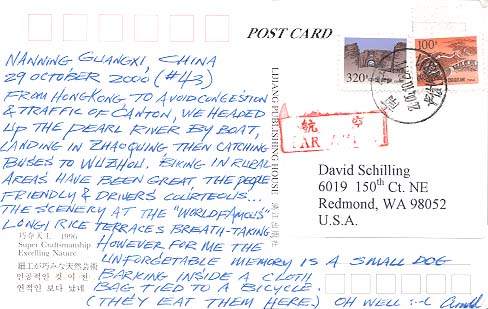 POST CARD
NANNING GUANGXI, CHINA
29 OCTOBER 2000 (#43)
FROM HONGKONG TO AVOID CONGESTION
& TRAFFIC OF CANTON, WE HEADED
UP THE PEARL RIVER BY BOAT,
LANDING IN ZHAOQUING THEN CATCHING
BUSES TO WUZHOU. BIKING IN RURAL
AREAS HAVE BEEN GREAT, THE PEOPLE
FRIENDLY & DRIVERS COURTEOUS...
THE SCENERY AT THE "WORLD FAMOUS"
LONGJI RICE TERRACES BREATH-TAKING.
HOWEVER FOR ME THE
UNFORGETABLE MEMORY IS A SMALL DOG
BARKING INSIDE A CLOTH
BAG TIED TO A BICYCLE.
(THEY EAT THEM HERE.) OH WELL :-(
巧夺天工 1996
Super Craftsmanship
Excelling Nature
細工が巧みな天然芸術
인공적인 것이 천
연적인 보다 났네
LIJIANG PUBLISHING HOUSE 漓江出版社
320
100
航空
PAR AVION
David Schilling
6019 150th Ct. NE
Redmond, WA 98052
U.S.A.